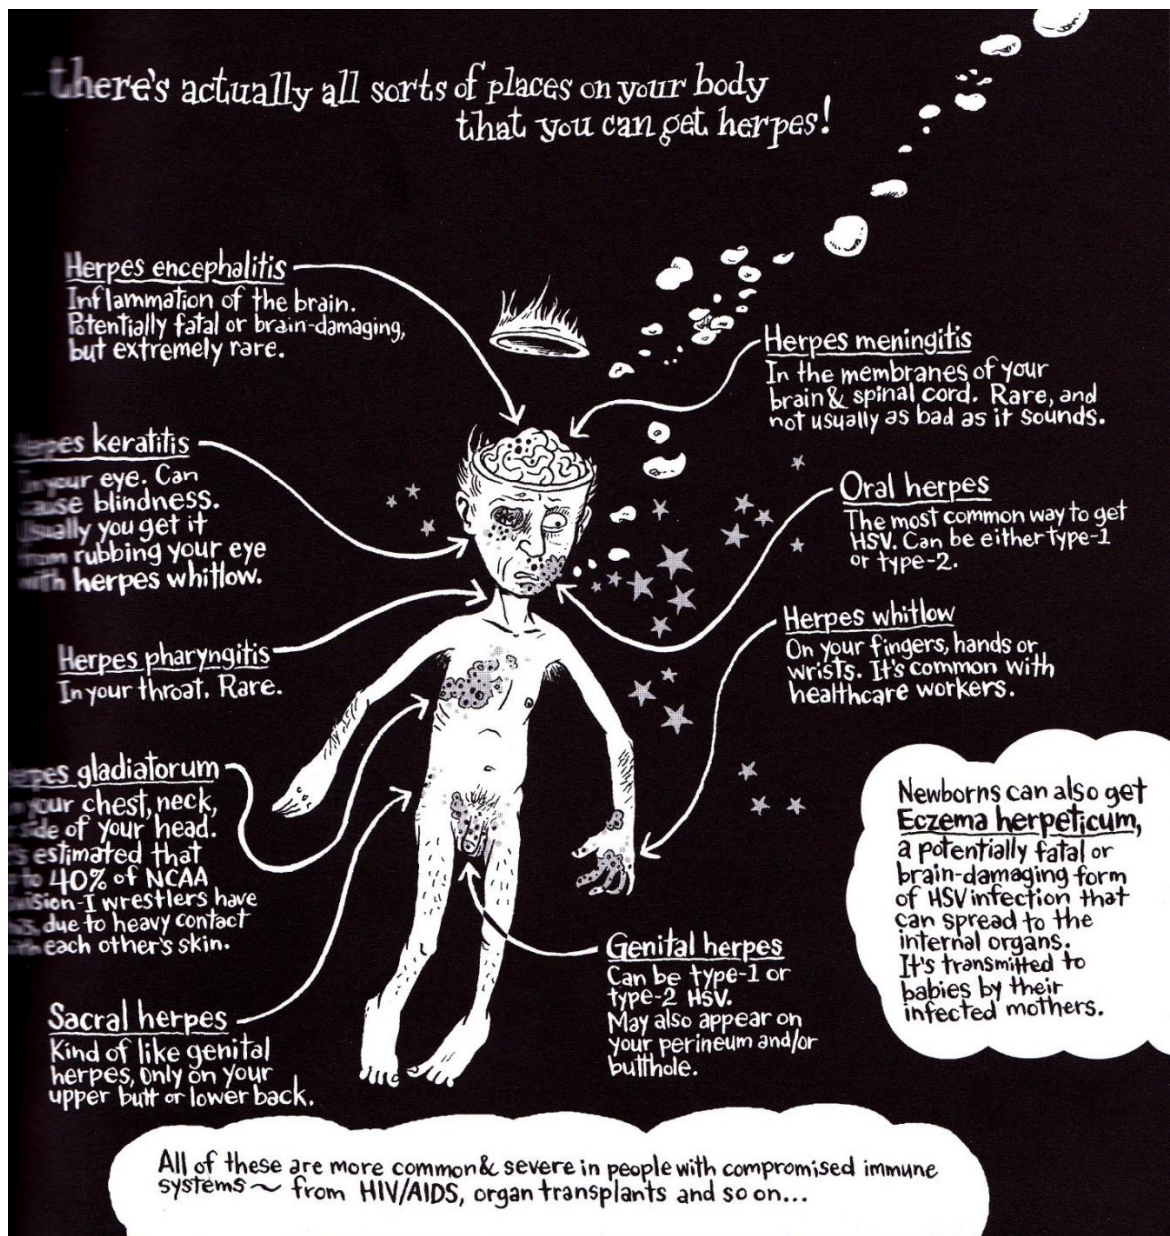 ...there's actually all sorts of places on your body
that you can get herpes!
Herpes encephalitis
Inflammation of the brain.
Potentially fatal or brain-damaging,
but extremely rare.
Herpes keratitis
In your eye. Can
cause blindness.
Usually you get it
from rubbing your eye
with herpes whitlow.
Herpes pharyngitis
In your throat. Rare.
gladiatorum
your chest, neck,
side of your head.
estimated that
to 40% of NCAA
wrestlers have
due to heavy contact
each other's skin.
Sacral herpes
Kind of like genital
herpes, only on your
upper butt or lower back.
Herpes meningitis
In the membranes of your
brain & spinal cord. Rare, and
not usually as bad as it sounds.
Oral herpes
The most common way to get
HSV. Can be either type-1
or type-2.
Herpes whitlow
On your fingers, hands or
wrists. It's common with
healthcare workers.
Genital herpes
Can be type-1 or
type-2 HSV.
May also appear on
your perineum and/or
butthole.
Newborns can also get
Eczema herpeticum,
a potentially fatal or
brain-damaging form
of HSV infection that
can spread to the
internal organs.
It's transmitted to
babies by their
infected mothers.
All of these are more common & severe in people with compromised immune
systems ~ from HIV/AIDS, organ transplants and so on...